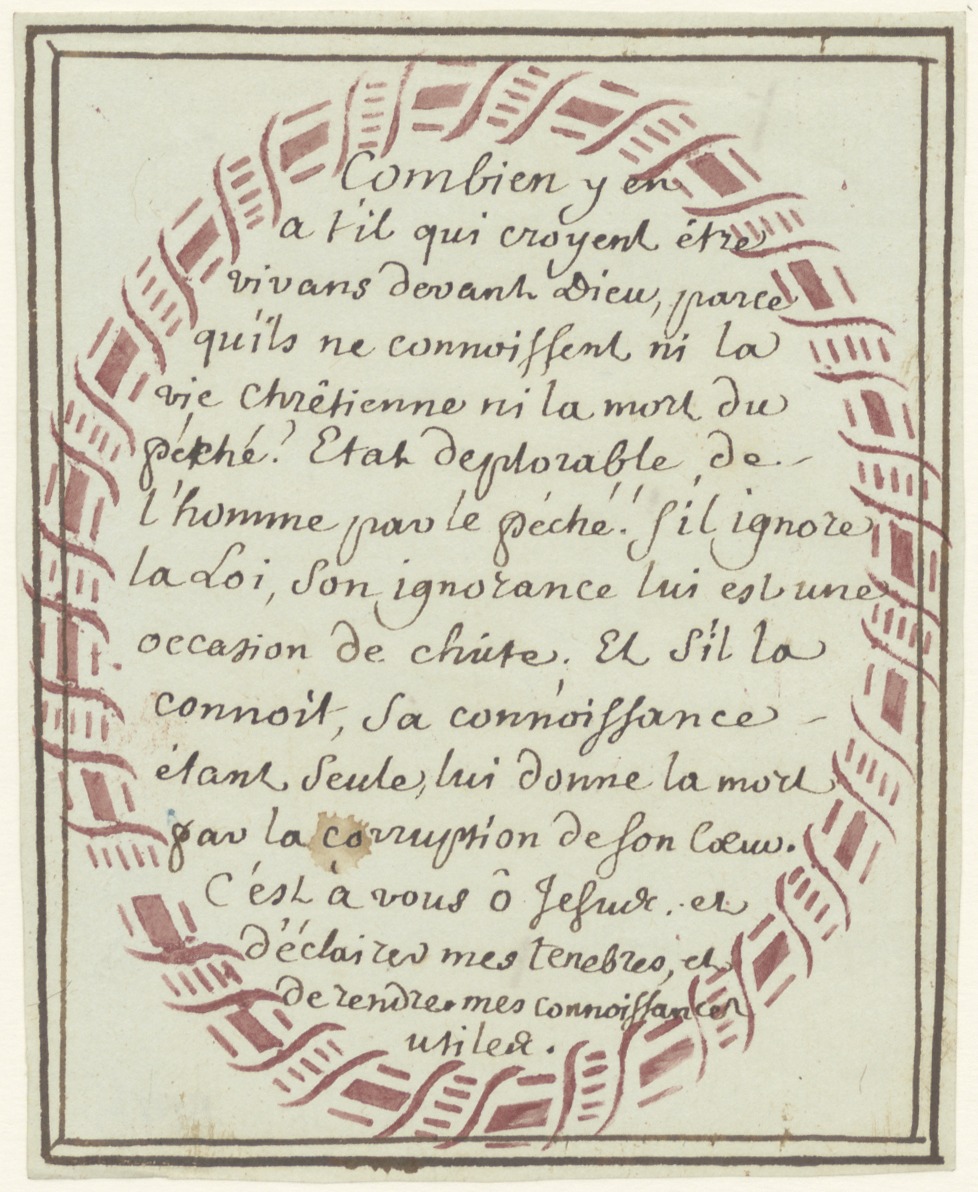 Combien y en
a t'il qui croyent étre
vivans devant Dieu, parce
qu'ils ne connoissent ni la
vie Chrêtienne ni la mort du
péché? Etat deplorable de
l'homme par le péché! s'il ignore
la Loi, son ignorance lui est une
occasion de chûte. Et s'il la
connoit, sa connoissance
étant seule, lui donne la mort
par la corruption de son Cœur.
C'est à vous ô Jesus, et
d'éclairer mes tenebres, et
de rendre mes connoissances
utiles.